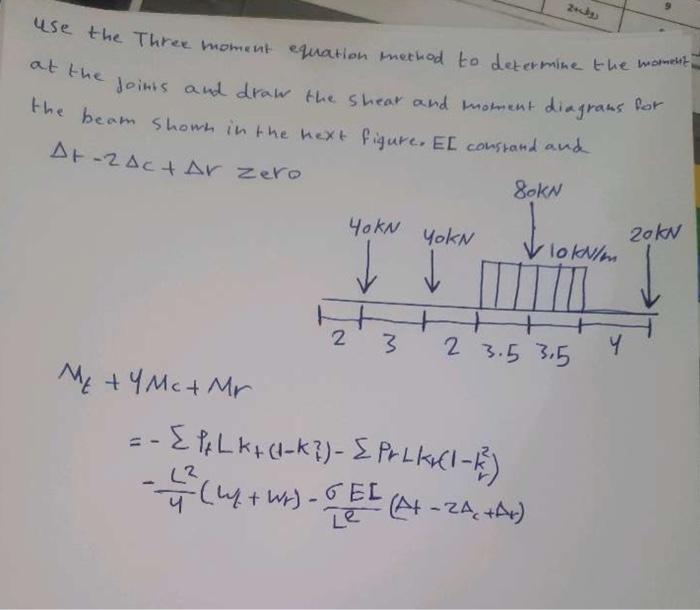 2+dyy
9
Use the Three moment equation method to determine the moment
at the joints and draw the shear and moment diagrams for
the beam shown in the next figure. EI constand and
Δt - 2Δc + Δr zero
80kN
40kN 40kN 20kN
10kN/m
2 3 2 3.5 3.5 4
Mt + 4Mc + Mr
= - Σ Pt L kt (1-k²t) - Σ Pr L kr (1-k²r)
- L²/4 (wt + wr) - 6EI/L² (Δt - 2Δc + Δr)